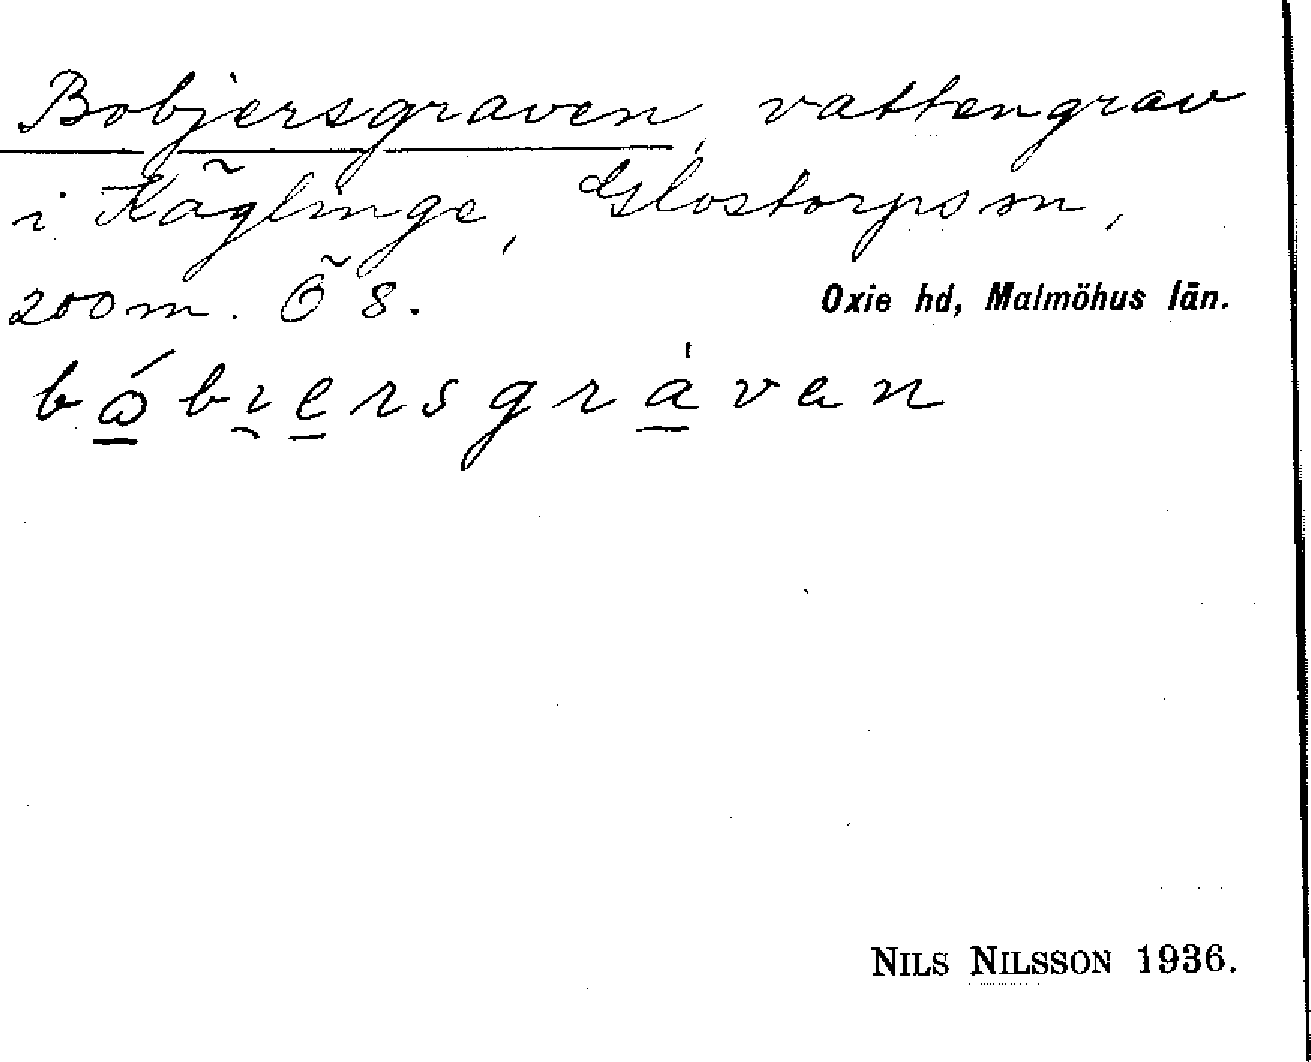 Bobjersgraven, vattengrav
i Käglinge, Glostorps sn,
200 m. Ö 8.
Oxie hd, Malmöhus län.
NILS NILSSON 1936.